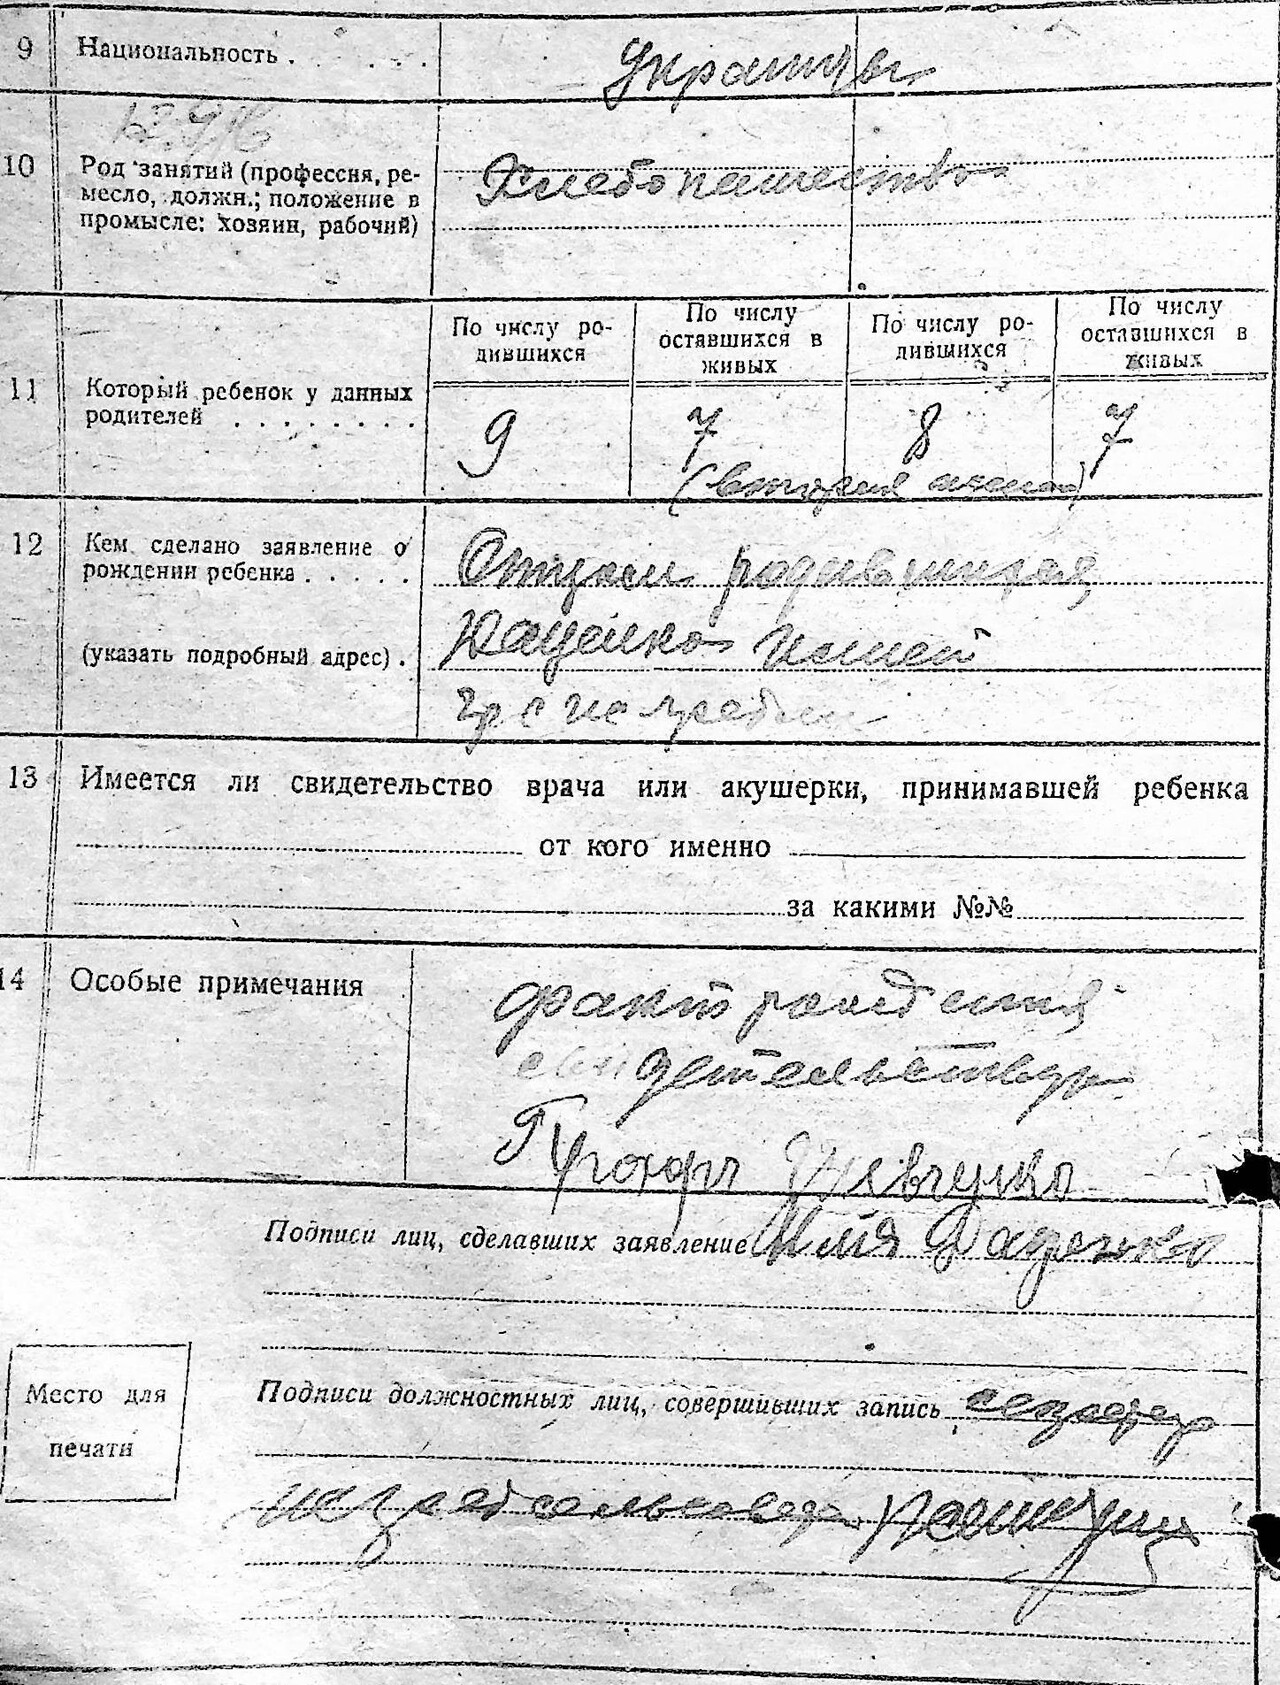 9 Национальность . . . . . . Украинцы
10 Род занятий (профессия, ре-
месло, должн.; положение в
промысле: хозяин, рабочий)
Хлебопашество
По числу ро-
дившихся
По числу
оставшихся в
живых
По числу ро-
дившихся
По числу
оставшихся в
живых
11 Который ребенок у данных
родителей . . . . . . . .
9 7 8 7
(вторая
12 Кем сделано заявление о
рождении ребенка . . . . .
(указать подробный адрес) .
Отцом родившегося
Даценко Илией
13 Имеется ли свидетельство врача или акушерки, принимавшей ребенка
от кого именно
за какими №№
14 Особые примечания
факт рождения
свидетельствую
Прохор Шевченко
Подписи лиц, сделавших заявление Илия Даценко
Подписи должностных лиц, совершивших запись секретар
Место для
печати
сельсовета